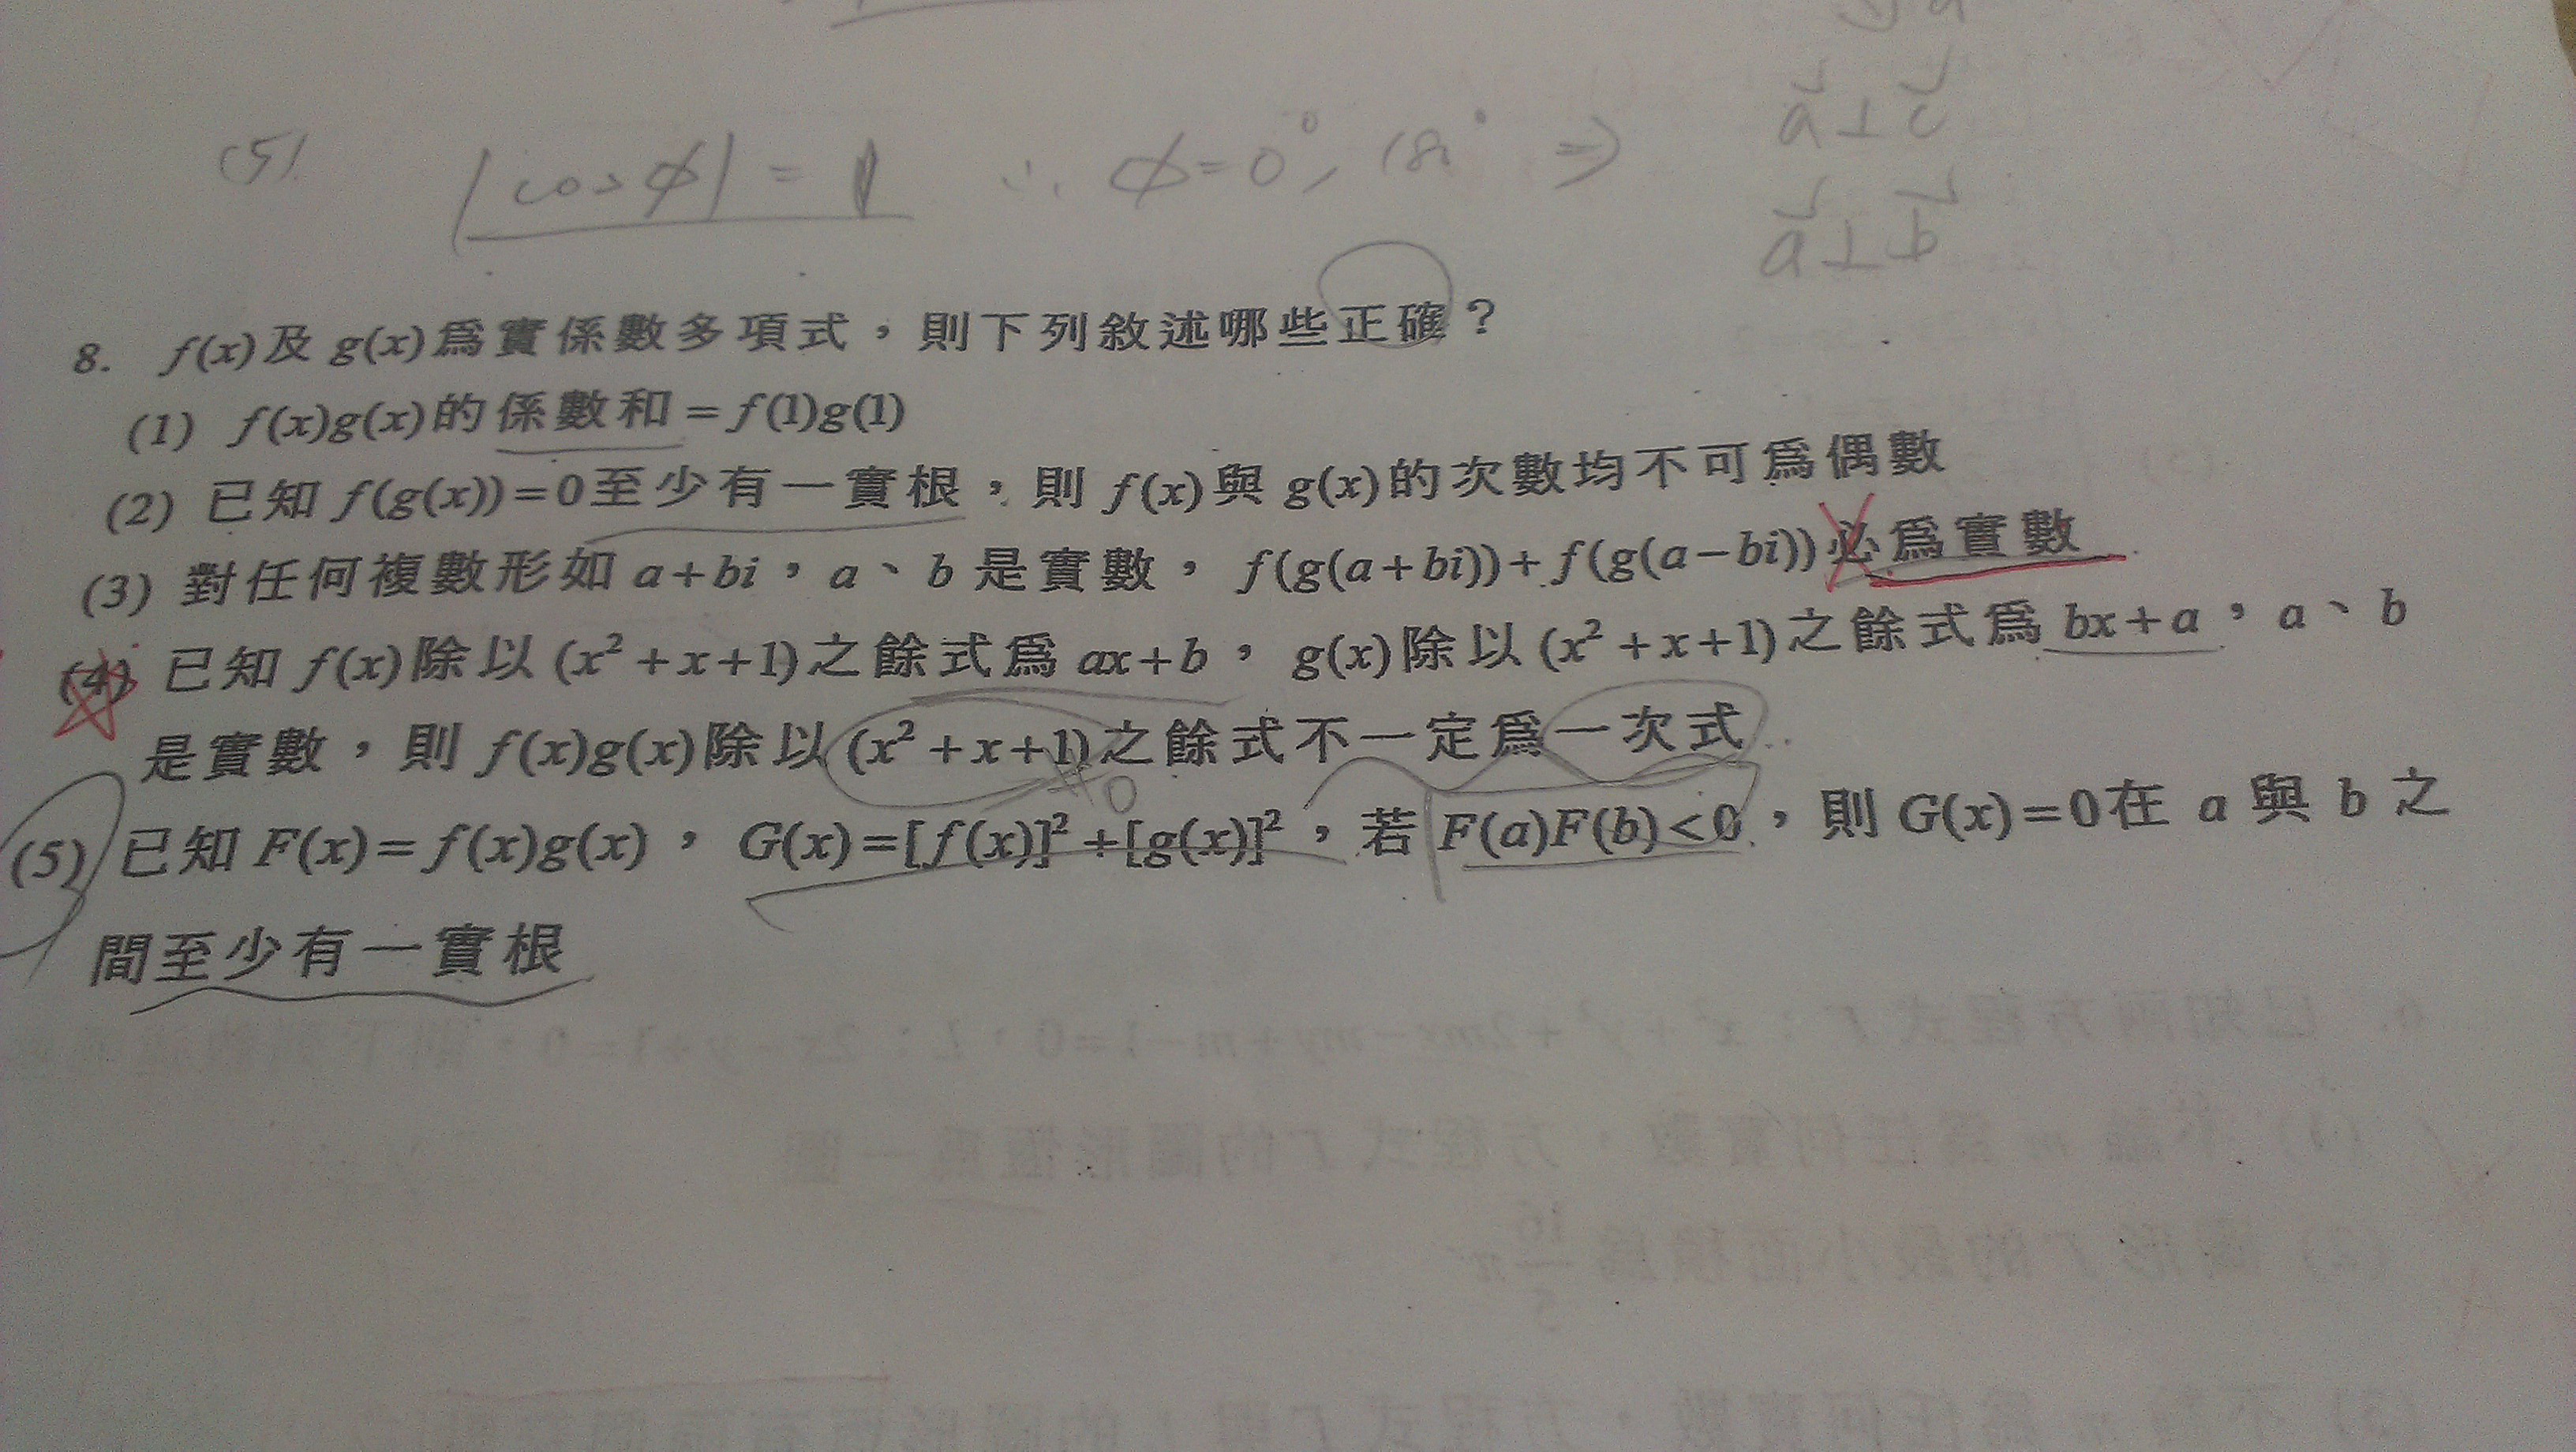 (5). |cosφ| = 1 ∴ φ=0°, 180° ⇒
a⊥c
a⊥b
8. f(x)及 g(x)為實係數多項式，則下列敘述哪些正確？
(1) f(x)g(x)的係數和=f(1)g(1)
(2) 已知 f(g(x))=0至少有一實根，則 f(x)與 g(x)的次數均不可為偶數
(3) 對任何複數形如 a+bi，a、b 是實數， f(g(a+bi))+f(g(a−bi))必為實數
(4) 已知 f(x)除以 (x²+x+1)之餘式為 ax+b， g(x)除以 (x²+x+1)之餘式為 bx+a，a、b
是實數，則 f(x)g(x)除以 (x²+x+1)之餘式不一定為一次式
≠0
(5) 已知 F(x)=f(x)g(x)， G(x)=[f(x)]²+[g(x)]²，若 F(a)F(b)<0，則 G(x)=0在 a 與 b 之
間至少有一實根